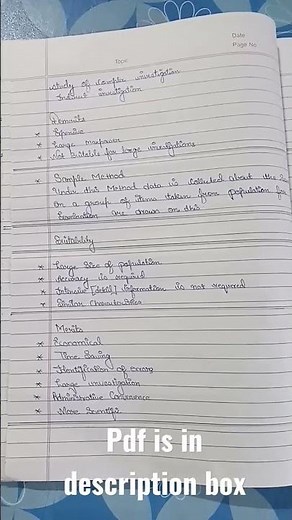 Date
Page No.
Topic
study of complex investigation
Indirect investigation
Demerits
* Expensive
* Large manpower
* Not suitable for large investigations
* Sample Method
Under this Method data is collected about the
on a group of items taken from population for
Examination are drawn on this
Suitability
* Large Size of population
* Accuracy is required
* Intensive [detail] information is not required
* Similar
Merits
* Economical
* Time Saving
* Identification of errors
* Large investigation
* Administrative Convenience
* More Scientific
Pdf is in
description box